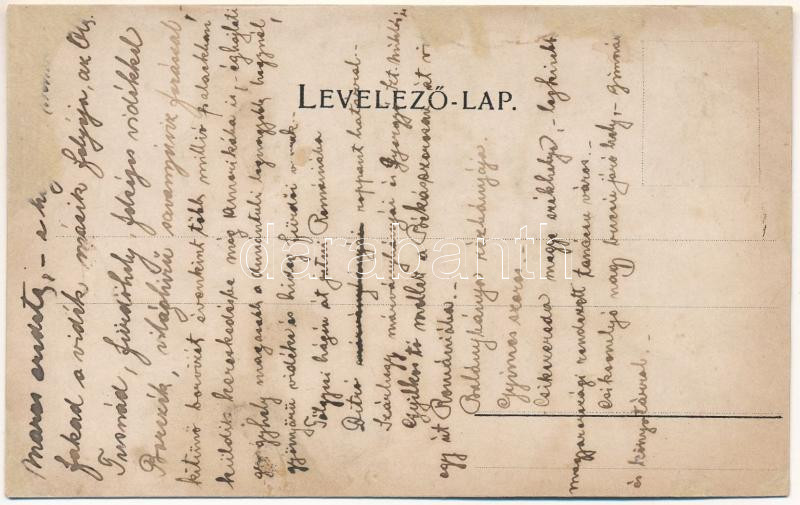 LEVELEZŐ-LAP.
Maros eredete, – s h
fakad a vidék másik folyója, az Olt.
Tusnád, fürdőhely, fölséges vidékkel
Borszék, világhírű savanyúvíz forrással –
kitünő borvizét évenkint több millió palackban
küldik kereskedésbe még Amerikába is, – éghajlati
gyógyhely magasabb a dunántúli legnagyobb hegynél
gyönyörű vidéke és hideg fürdői vannak. –
Tölgyesi hágón át jutni Romániába
Ditró roppant határral. –
Szárhegy márványbányái és Gyergyó szt. miklós
Gyilkos tó mellett a Békásszoroson át vi
egy út Romániába. –
Balánbánya, rézbányája.
Gyimes szoros. –
Csikszereda megye székhelye, – legkisebb
magyarországi rendezett tanácsu város. –
Csiksomlyó nagy bucsujáró hely, – Gimnáz
és könyvtárral. –
darabanth